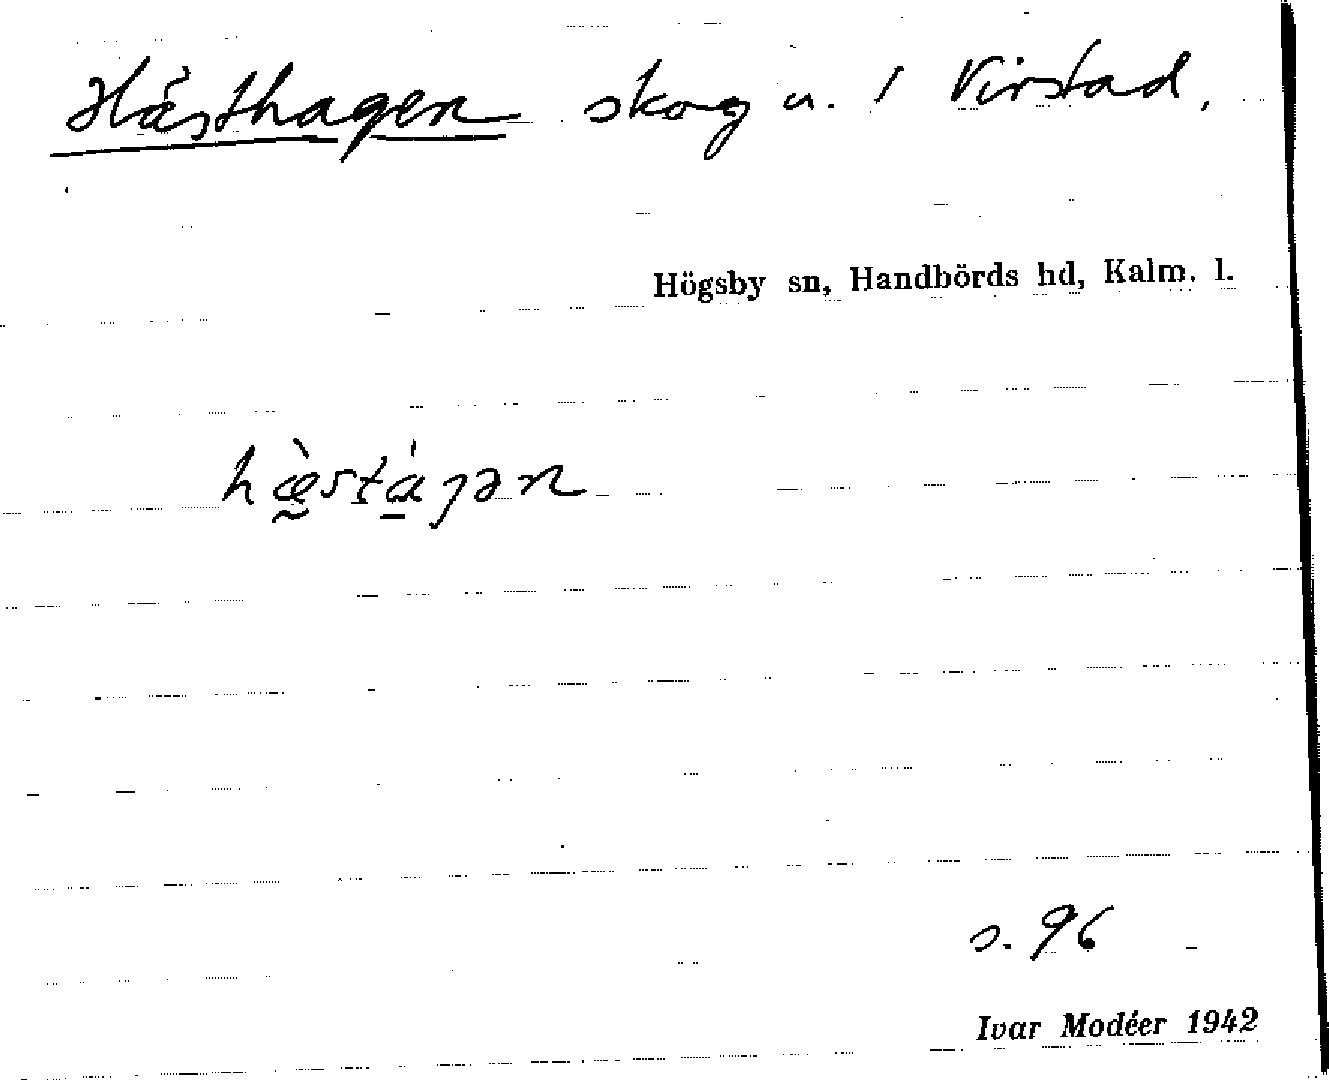 Hästhagen skog u. / Virstad.
Högsby sn, Handbörds hd, Kalm. l.
s. 96
Ivar Modéer 1942